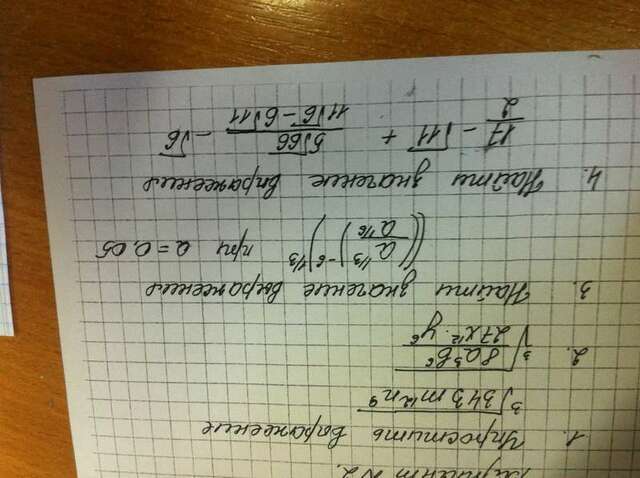 Вариант N 2.
1. Упростить выражение
∛(343 m¹² n⁹)
2. ∛(8a³b⁶ / 27x¹² · y⁶)
3. Найти значение выражения
((a^(1/3) / a^(1/6))^(-6))^(1/3) при a = 0,05
4. Найти значение выражения
17/2 - √11 + 5√66 / (11√6 - 6√11) - √6